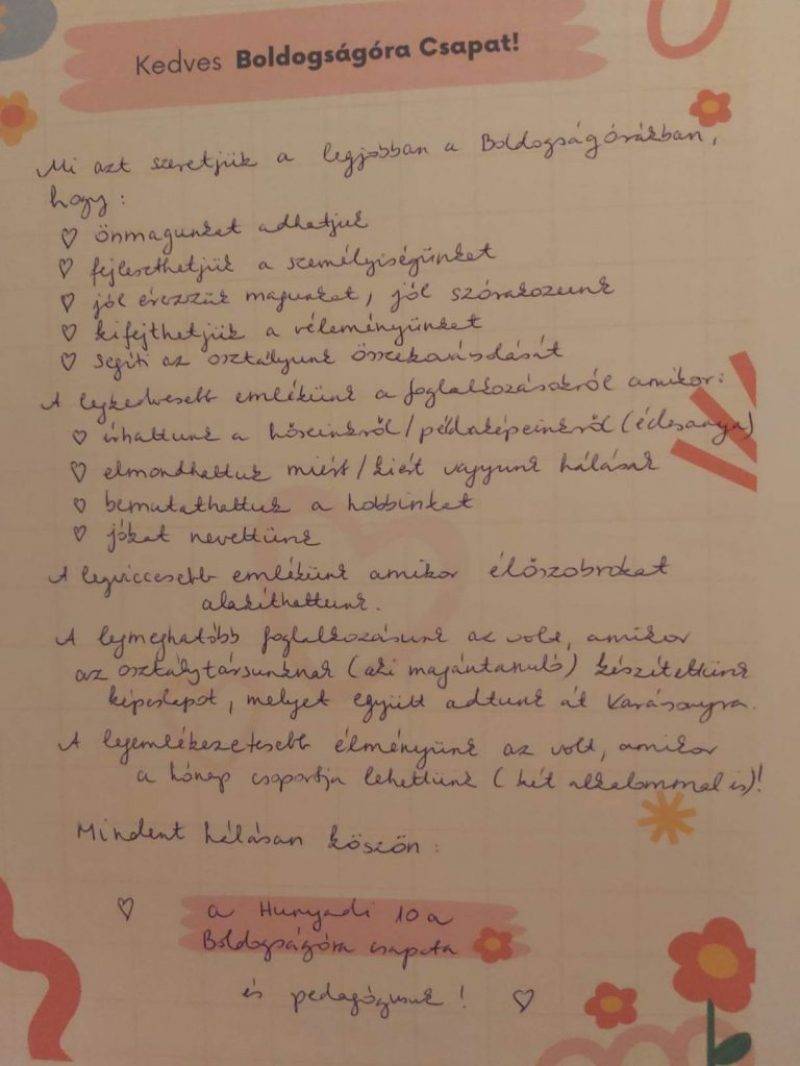 Kedves Boldogságóra Csapat!
Mi azt szeretjük a legjobban a Boldogságórákban,
hogy:
♡ önmagunkat adhatjuk
♡ fejleszthetjük a személyiségünket
♡ jól érezzük magunkat, jól szórakozunk
♡ kifejthetjük a véleményünket
♡ segíti az osztályunk összekovásdását
A legkedvesebb emlékünk a foglalkozásokról amikor:
♡ írhattunk a hőseinkről/példaképeinkről (édesanya)
♡ elmondhattuk miért/kiért vagyunk hálásak
♡ bemutathattuk a hobbinkat
♡ jókat nevettünk
A legviccesebb emlékünk amikor élőszobrokat
alakíthattunk.
A legmeghatóbb foglalkozásunk az volt, amikor
az osztálytársunknak (aki magántanuló) készítettünk
képeslapot, melyet együtt adtunk át Karácsonyra.
A legemlékezetesebb élményünk az volt, amikor
a hónap csoportja lehettünk (két alkalommal is)!
Mindent hálásan köszön:
♡ a Hunyadi 10a
Boldogságóra csapata
és pedagógusuk! ♡